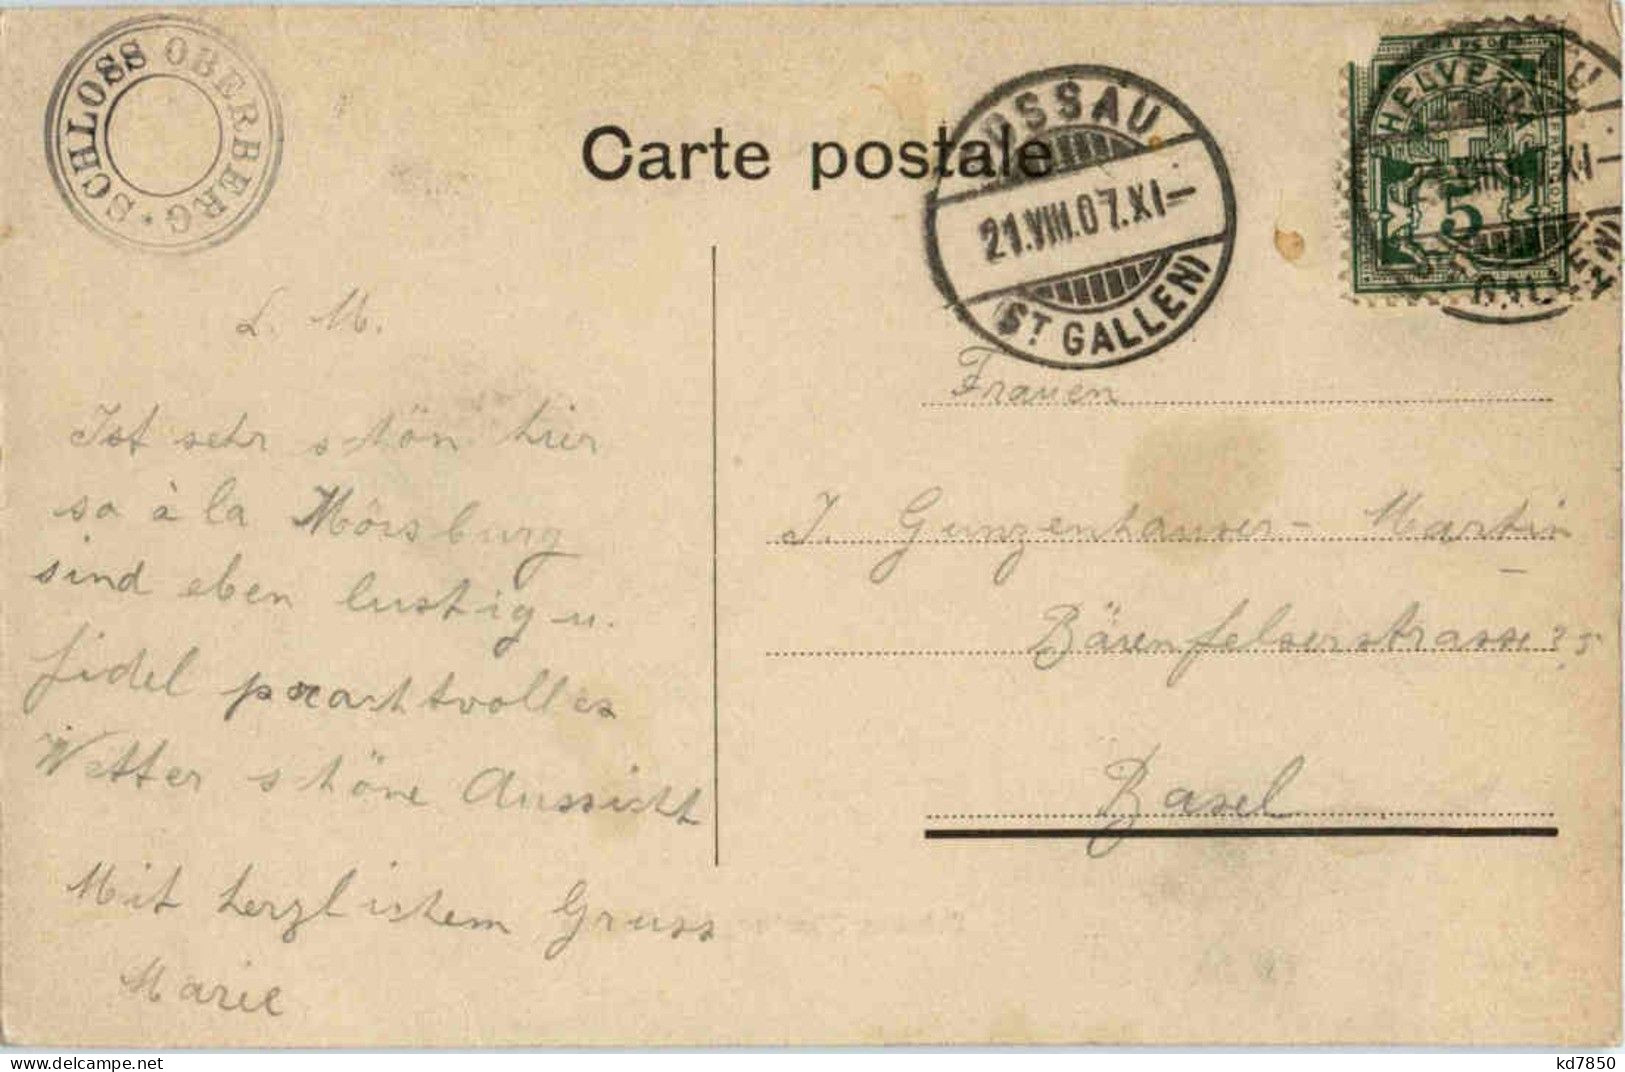 SCHLOSS OBERBERG
Carte postale
GOSSAU
21.VIII.07.XI–
(ST GALLEN)
HELVETIA
5
L. M.
Ist sehr schön hier
so à la Mörsburg
sind eben lustig u.
fidel prachtvolles
Wetter schöne Aussicht
Mit herzlichem Gruss
Marie
Frauen
J. Gunzenhauser-Martin
Bärenfelserstrasse
Basel
kd7850